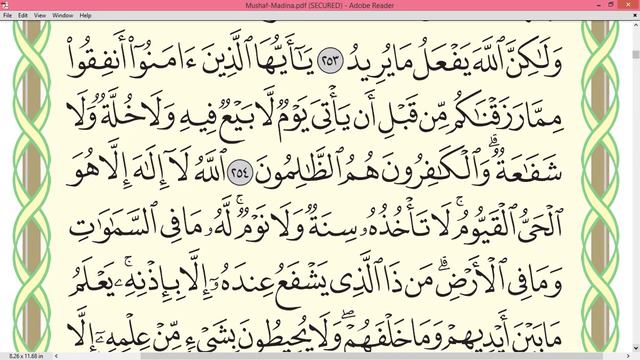 Mushaf-Madina.pdf (SECURED) - Adobe Reader
File Edit View Window Help
وَلَـٰكِنَّ ٱللَّهَ يَفْعَلُ مَا يُرِيدُ ٢٥٣ يَـٰٓأَيُّهَا ٱلَّذِينَ ءَامَنُوٓا۟ أَنفِقُوا۟
مِمَّا رَزَقْنَـٰكُم مِّن قَبْلِ أَن يَأْتِىَ يَوْمٌ لَّا بَيْعٌ فِيهِ وَلَا خُلَّةٌ وَلَا
شَفَـٰعَةٌ ۗ وَٱلْكَـٰفِرُونَ هُمُ ٱلظَّـٰلِمُونَ ٢٥٤ ٱللَّهُ لَآ إِلَـٰهَ إِلَّا هُوَ
ٱلْحَىُّ ٱلْقَيُّومُ ۚ لَا تَأْخُذُهُۥ سِنَةٌ وَلَا نَوْمٌ ۚ لَّهُۥ مَا فِى ٱلسَّمَـٰوَٰتِ
وَمَا فِى ٱلْأَرْضِ ۗ مَن ذَا ٱلَّذِى يَشْفَعُ عِندَهُۥٓ إِلَّا بِإِذْنِهِۦ ۚ يَعْلَمُ
مَا بَيْنَ أَيْدِيهِمْ وَمَا خَلْفَهُمْ ۖ وَلَا يُحِيطُونَ بِشَىْءٍ مِّنْ عِلْمِهِۦٓ إِلَّا
8.26 x 11.68 in